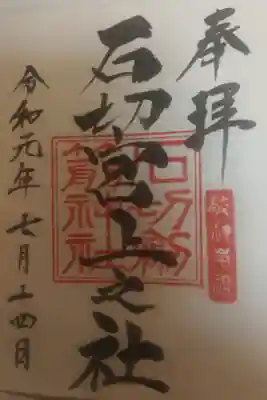 奉拝
敬神崇祖
石切宮上之社
石切劔
箭神社
令和元年七月 四日